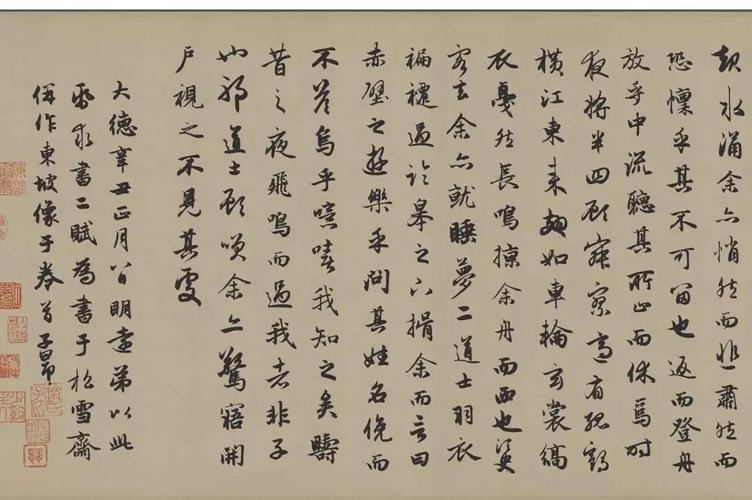 起水涌余亦悄然而悲肅然而
恐懍乎其不可留也返而登舟
放乎中流聽其所止而休焉時
夜將半四顧寂寥適有孤鶴
橫江東來翅如車輪玄裳縞
衣戛然長鳴掠余舟而西也須臾
客去余亦就睡夢二道士羽衣
褊褼過臨皋之下揖余而言曰
赤壁之遊樂乎問其姓名俛而
不答烏乎噫嘻我知之矣疇
昔之夜飛鳴而過我者非子
也邪道士顧笑余亦驚寤開
戶視之不見其處
大德辛丑正月八日明遠弟以此
紙求書二賦為書于松雪齋
併作東坡像于卷首子昂